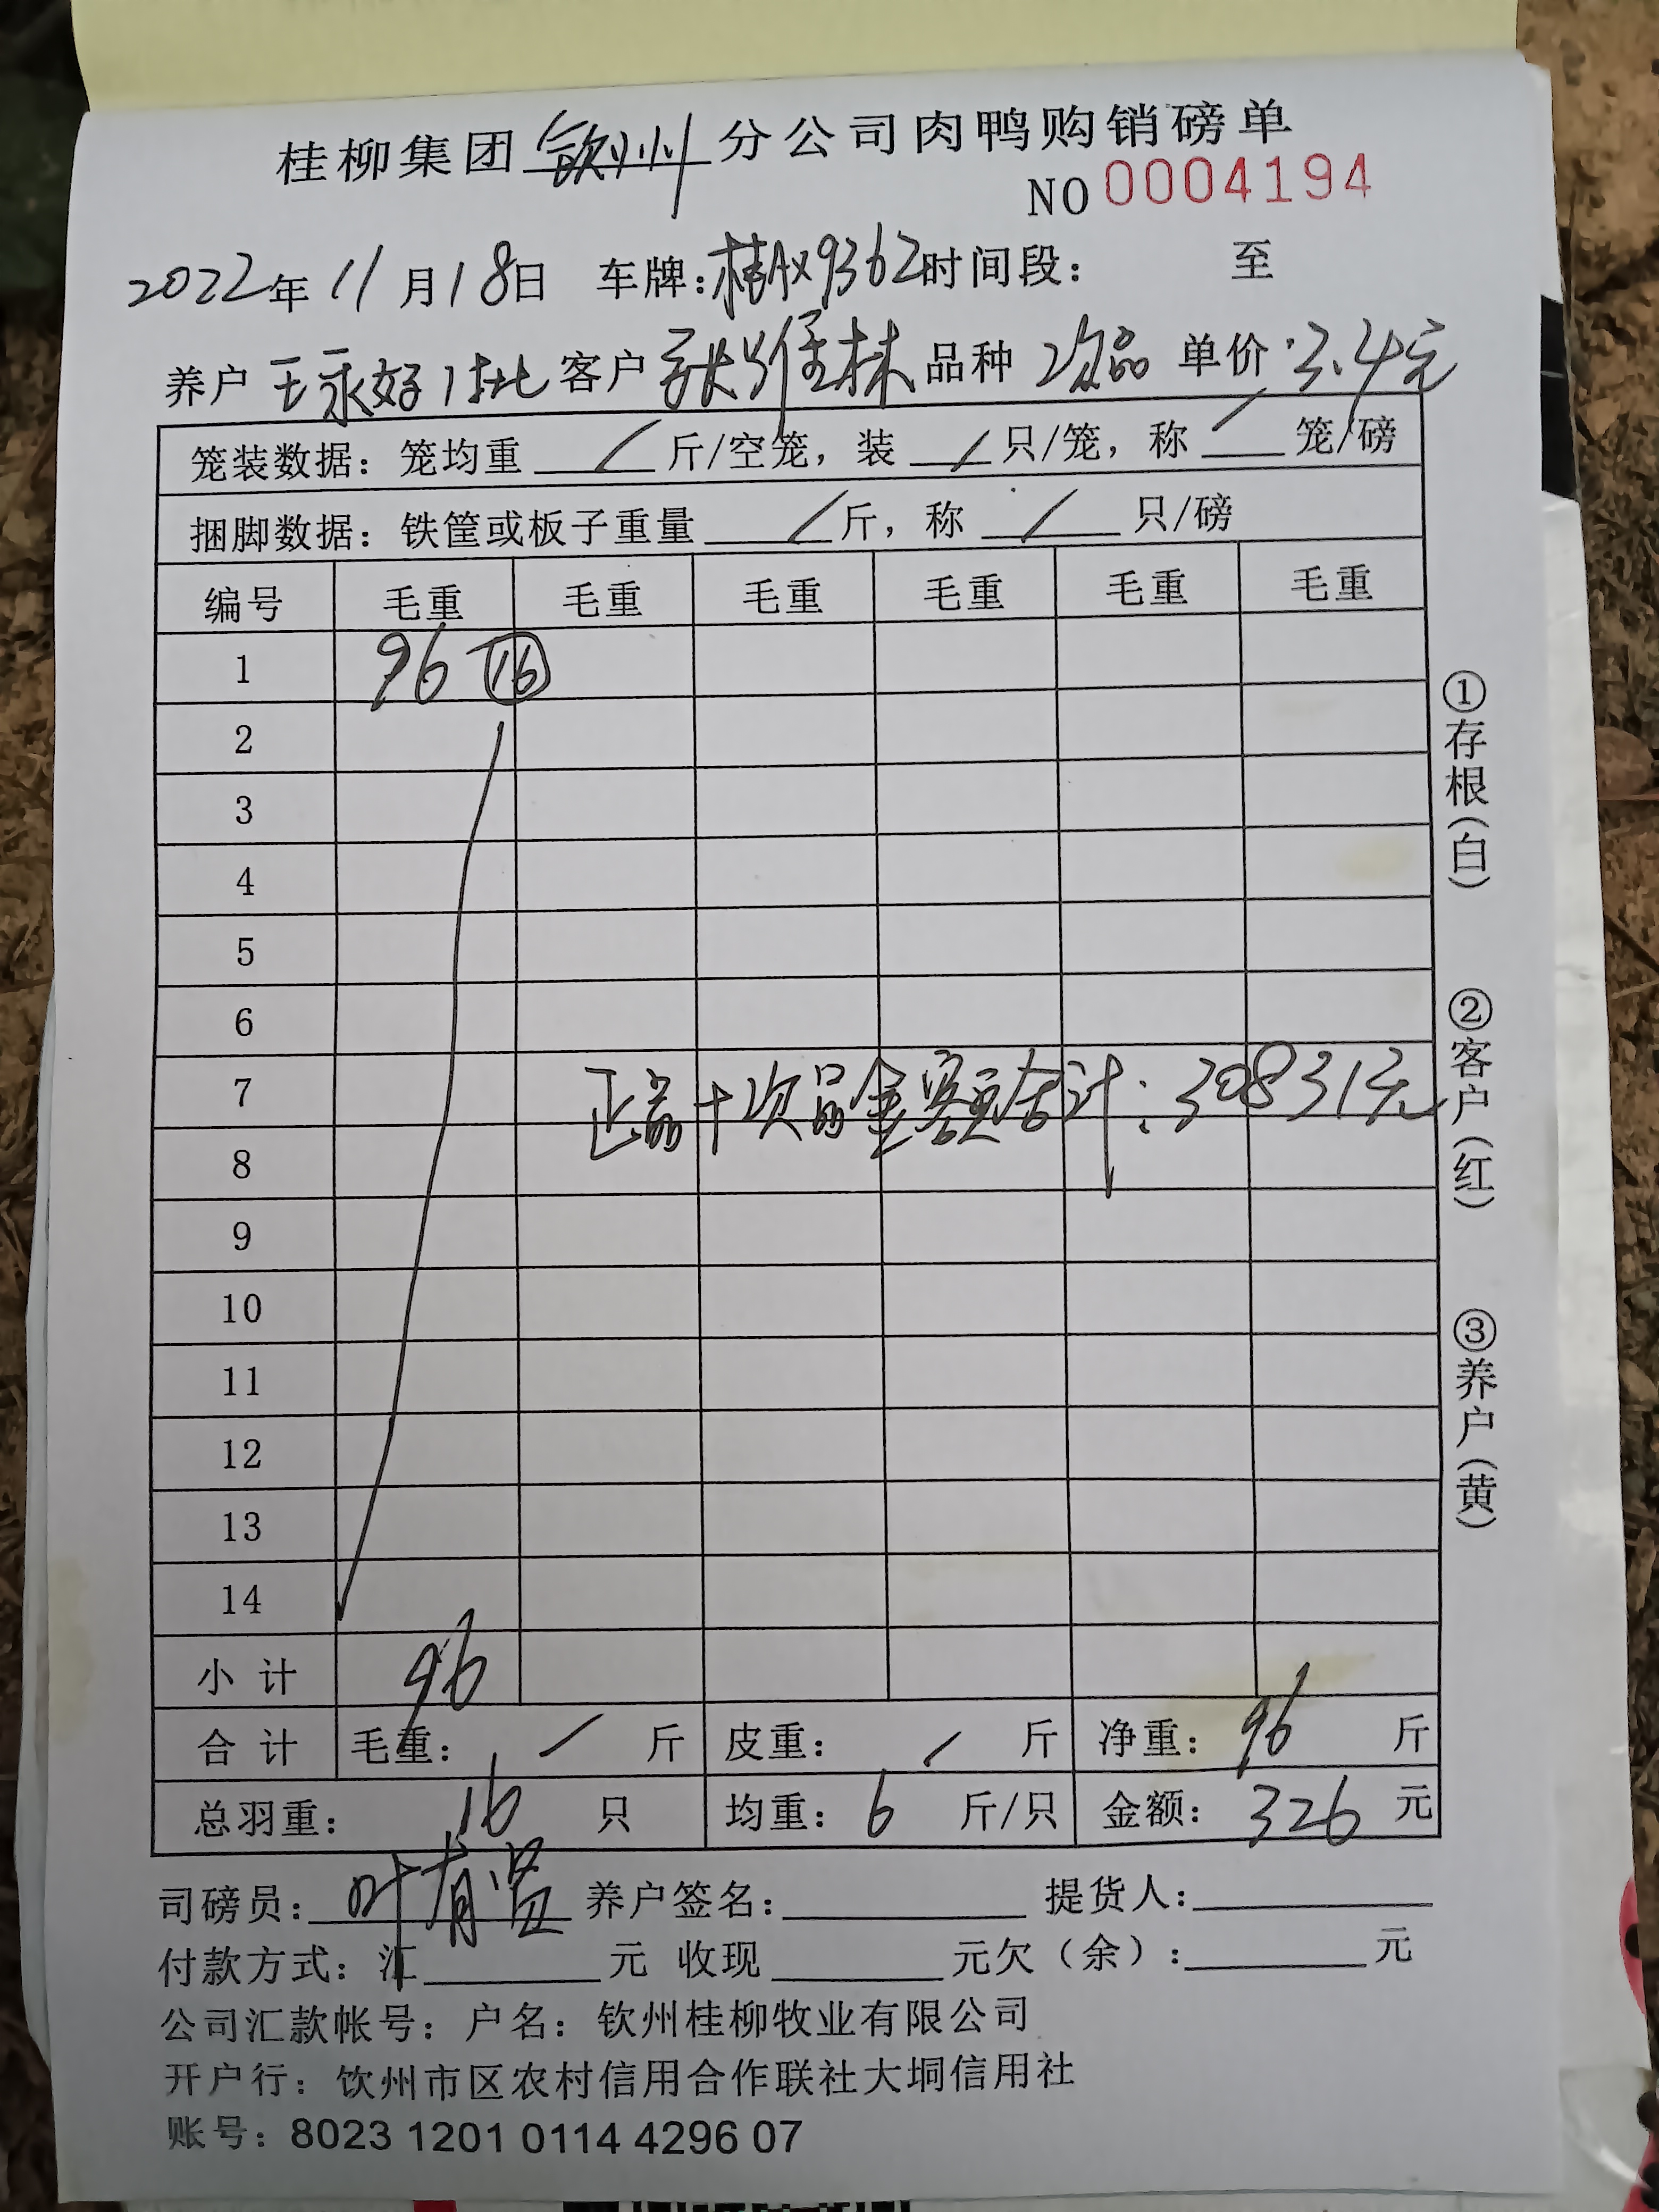 桂柳集团钦州分公司肉鸭购销磅单
NO 0004194
2022年11月18日 车牌:桂AX9362时间段: 至
养户 王永好1批 客户 维林 品种 次品 单价:3.4元
笼装数据: 笼均重 / 斤/空笼, 装 / 只/笼, 称 / 笼/磅
捆脚数据: 铁筐或板子重量 / 斤, 称 / 只/磅
编号 毛重 毛重 毛重 毛重 毛重 毛重
1 96 16
2
3
4
5
6
7 正品+次品金额合计:30831元
8
9
10
11
12
13
14
小计 96
合计 毛重: / 斤 皮重: / 斤 净重: 96 斤
总羽重: 16 只 均重: 6 斤/只 金额: 326 元
司磅员: 叶有贤 养户签名: 提货人:
付款方式: 汇 元 收现 元欠(余): 元
公司汇款帐号: 户名: 钦州桂柳牧业有限公司
开户行: 钦州市区农村信用合作联社大垌信用社
账号: 8023 1201 0114 4296 07
①存根(白)
②客户(红)
③养户(黄)